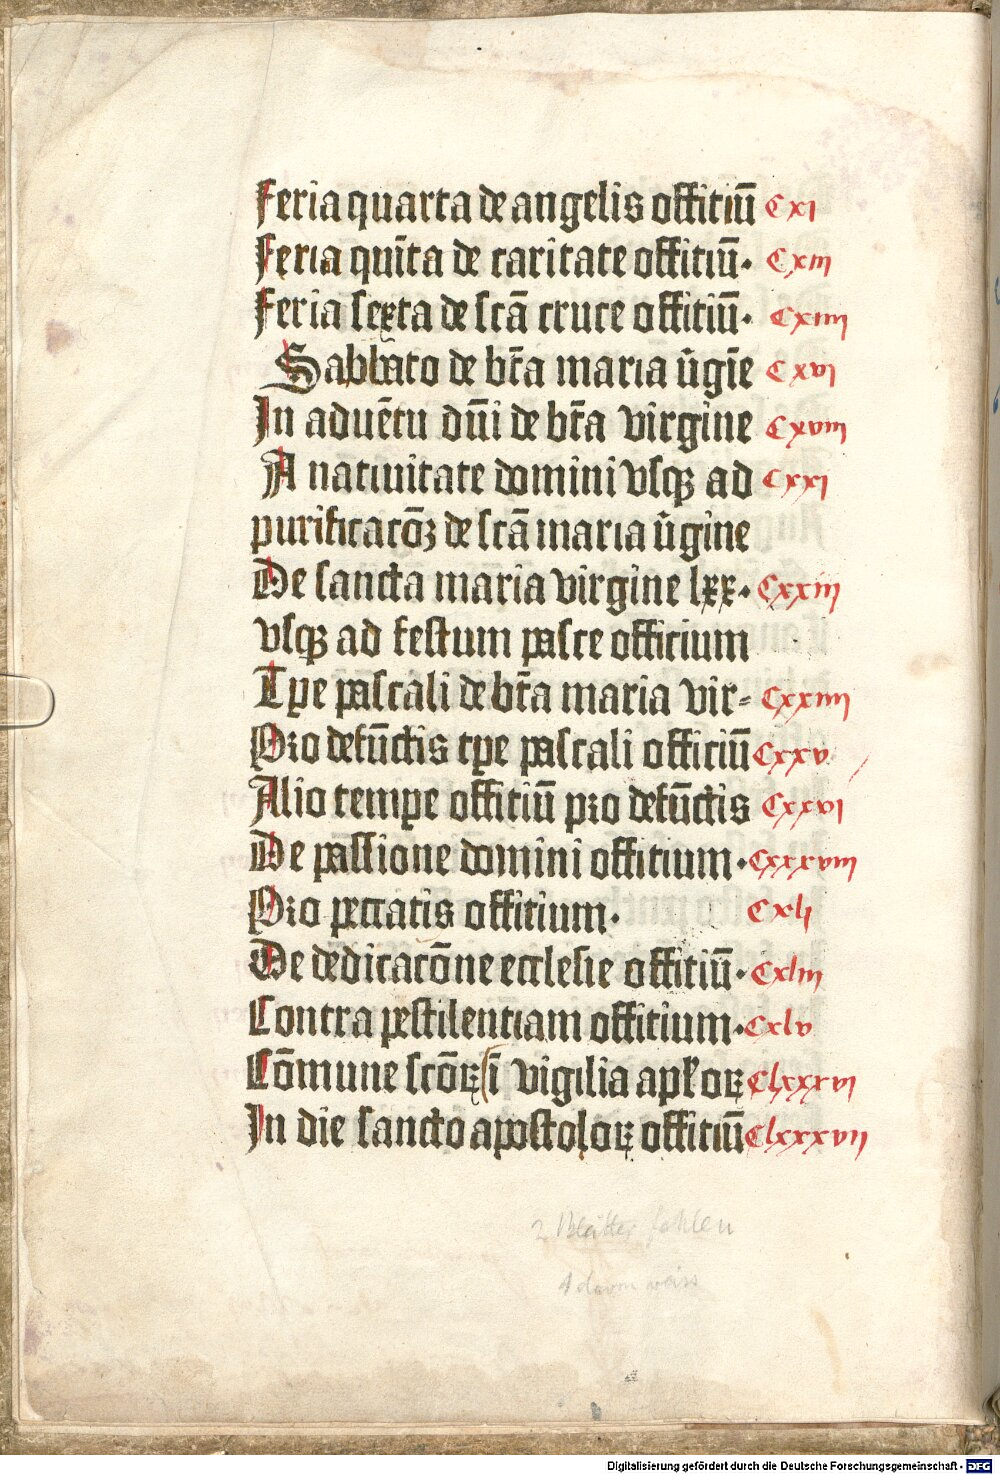 Feria quarta de angelis offitiū Cxi
Feria quīta de caritate offitiū. Cxiii
Feria sexta de scā cruce offitiū. Cxiiii
Sabbato de bt̄a maria v̄giē Cxvi
In aduētu dn̄i de bt̄a virgine Cxviii
A natiuitate domini vsqꝫ ad Cxxi
purificacōꝫ de scā maria v̄gine
De sancta maria virgine lxx. Cxxiii
vsqꝫ ad festum pasce officium
Tꝑe pascali de bt̄a maria vir⸗ Cxxiiii
Pro defūctis tꝑe pascali officiū Cxxv
Alio temꝑe offitiū pro defūctis Cxxvi
De passione domini offitium. Cxxxviii
Pro peccatis offitium. Cxli
De dedicacōne ecclesie offitiū. Cxliii
Contra pestilentiam offitium. Cxlv
Cōmune scōꝝ ī vigilia apl'oꝝ Clxxxvi
In die sancto apostoloꝝ offitiū Clxxxvii
2 Blätter fehlen
1 davon weiss
Digitalisierung gefördert durch die Deutsche Forschungsgemeinschaft - DFG